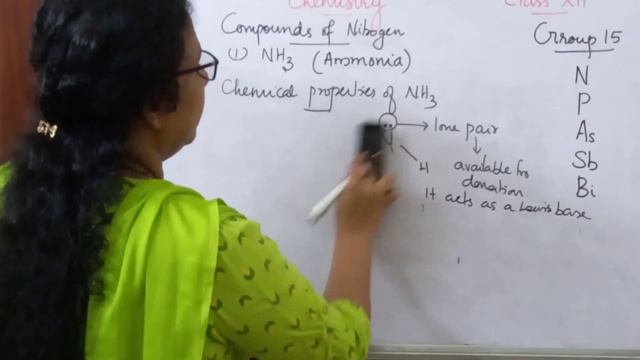 Chemistry
Class XII
Compounds of Nitrogen
Group 15
(1) NH3 (Ammonia)
Chemical properties of NH3
lone pair
available for
donation
H
It acts as a Lewis base
N
P
As
Sb
Bi